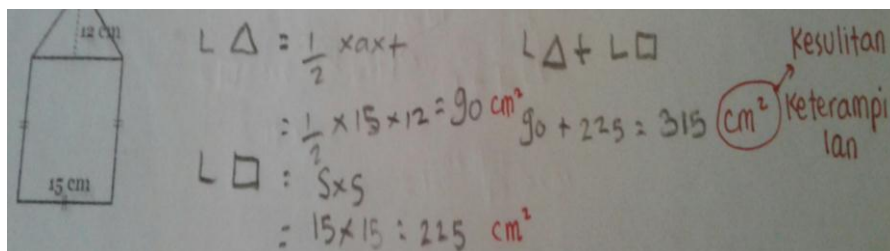 12 cm
15 cm
L △ = 1/2 × a × t
= 1/2 × 15 × 12 = 90 cm²
L □ = S × S
= 15 × 15 = 225 cm²
L △ + L □
90 + 225 = 315 cm²
Kesulitan
Keterampi
lan